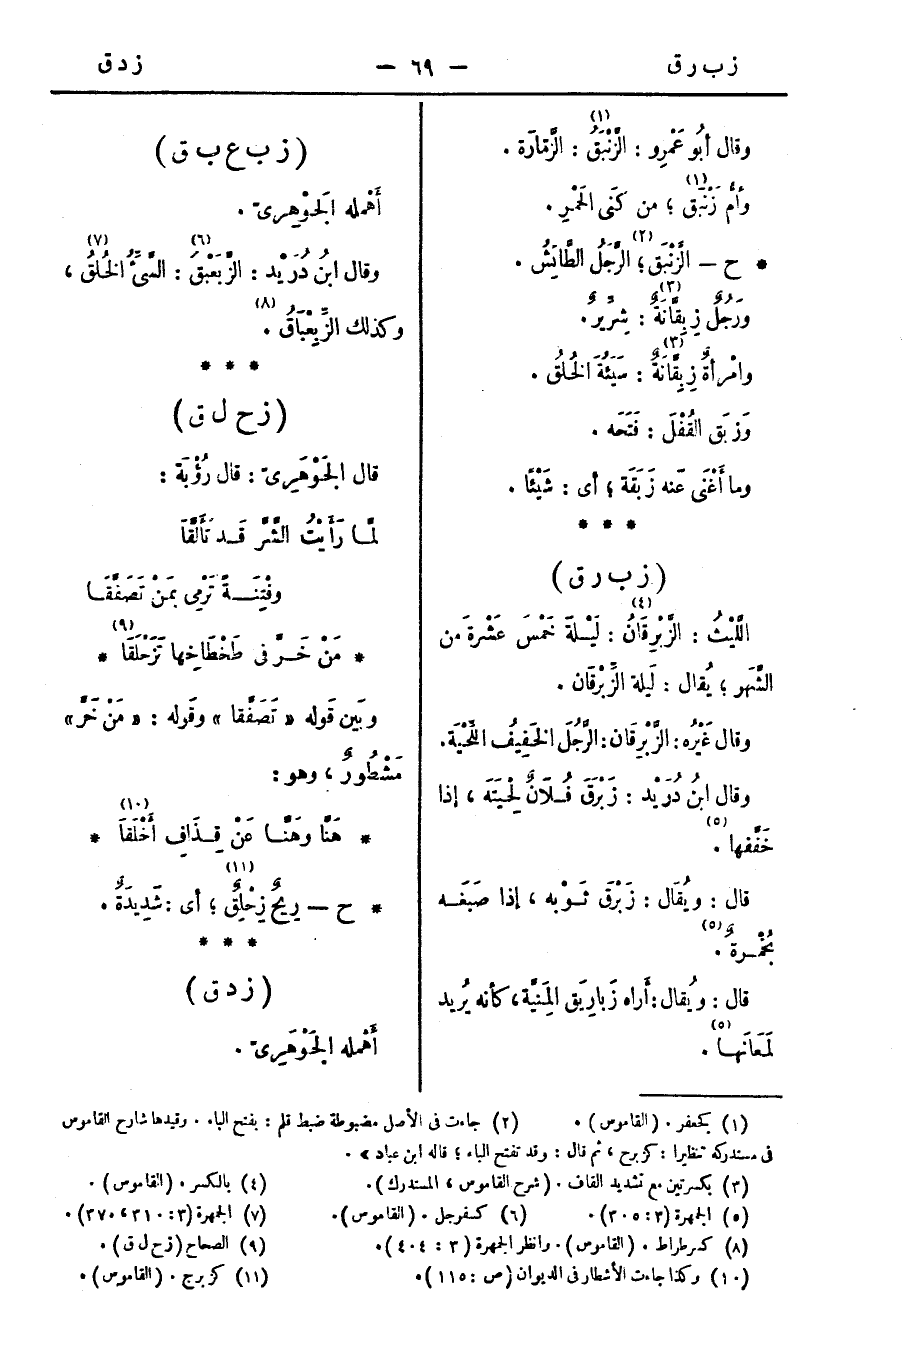 ز ب ر ق
— ٦٩ —
ز د ق
وقال أبُو عَمْرو : الزَّنْبَقُ (١) : الزَّمّارَة .
وأُمُّ زَنْبَق (١) ؛ من كُنَى الخَمْرِ .
* ح — الزَّنْبَق (٢) ؛ الرَّجُلُ الطَّائِشُ .
ورَجُلٌ زِبِقَّانَةٌ (٣) : شِرِّيرٌ .
وامْرأةٌ زِبِقَّانَةٌ (٣) : سَيِّئَةُ الخُلُق .
وَزَبَق القُفْلَ : فَتَحَه .
وما أَغْنَى عَنّه زَبَقَة ؛ أى : شَيْئًا .
* * *
( ز ب ر ق )
اللَّيْثُ : الزِّبْرِقَانُ (٤) : لَيْلَة خَمْسَ عَشْرةَ من
الشَّهر ؛ يُقال : لَيلة الزِّبْرِقَان .
وقال غَيْرُه : الزِّبْرِقَان : الرَّجُلَ الخَفِيفُ اللِّحْيَة .
وقال ابنُ دُرَيْد : زَبْرَقَ فُلَانٌ لِحْيَتَه ، إذا
خَفَّفها (٥) .
قال : ويُقَال : زَبْرَقَ ثَوْبه ، إذا صَبَغَه
بحُمْرةٌ (٥) .
قال : ويُقال : أراه زَبارِيَق المَنِيَّة ، كأنه يُريد
لَمعَانَها (٥) .
( ز ب ع ب ق )
أَهْمله الجَوْهَرِىّ .
وقال ابنُ دُرَيْد : الزَّبَعْبَقُ (٦) : السَّيِّئُ الخُلُقُ (٧) ،
وكذلك الزِّبِعْبَاقُ (٨) .
* * *
( ز ح ل ق )
قال الجَوْهَرِىّ : قال رُؤْبَة :
لمَّا رَأَيْتُ الشَّرَّ قَد تَأَلَّقَا
وفِتْنَةً تَرْمِى بمَنْ تَصَفَّقَا
* مَنْ خَرَّ فى طَخْطَاخِها تَزَحْلَقَا (٩) *
وبَين قَوله « تَصَفَّقا » وقَوله : « مَنْ خَرَّ »
مَشْطُورٌ ، وهو :
* هَنَّا وهَنَّا عَنْ قِذَافٍ أَخْلَقَا (١٠) *
* ح — رِيحٌ زِحْلِقٌ (١١) ؛ أى : شَدِيدَةٌ .
* * *
( ز د ق )
أَهْمله الجَوْهَرِىّ .
(١) كجعفر . (القاموس) . (٢) جاءت فى الأصل مضبوطة ضبط قلم : بفتح الباء . وقيدها شارح القاموس
فى مستدركه تنظيرا : كزبرج ، ثم قال : وقد تفتح الباء ؛ قاله ابن عباد » .
(٣) بكسرتين مع تشديد القاف . (شرح القاموس ، المستدرك). (٤) بالكسر . (القاموس) .
(٥) الجمهرة (٣ : ٣٠٥) . (٦) كسفرجل . (القاموس). (٧) الجمهرة (٣ : ٣١٠ ، ٣٧٠) .
(٨) كسرطراط . (القاموس) . وانظر الجمهرة (٣ : ٤٠٤) . (٩) الصحاح (زحلق) .
(١٠) وكذا جاءت الأشطار فى الديوان (ص : ١١٥) . (١١) كزبرج . (القاموس) .